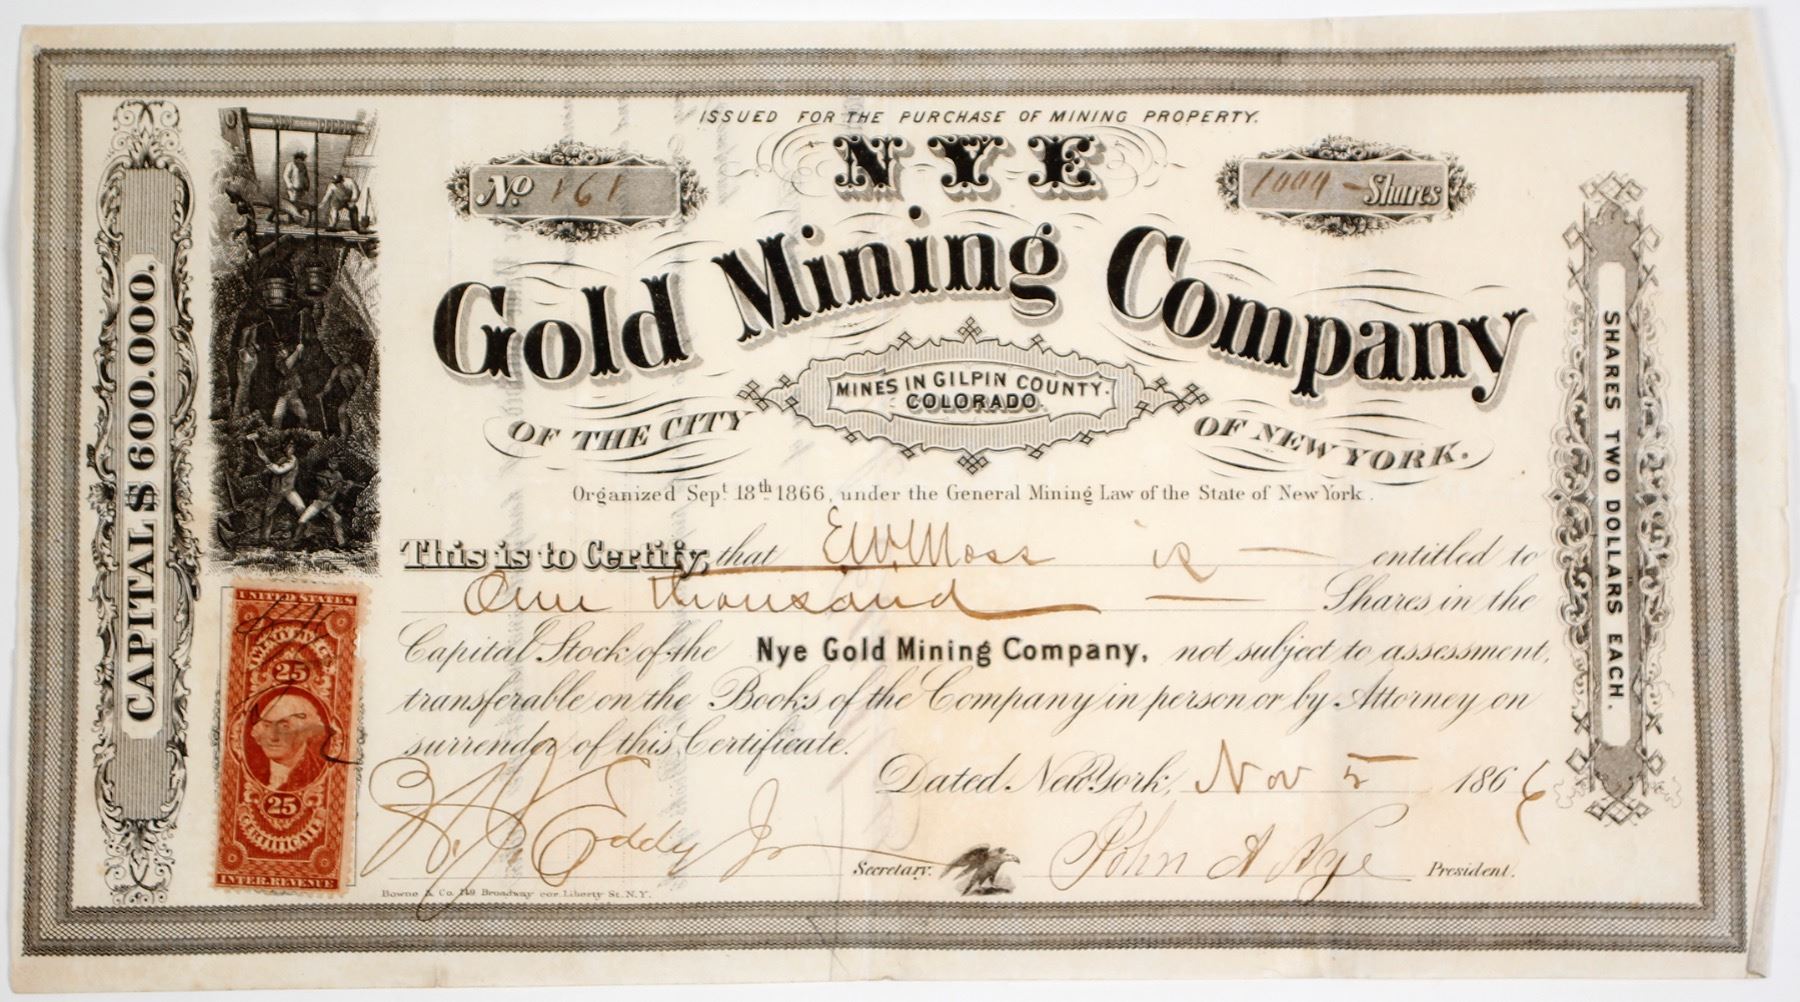 ISSUED FOR THE PURCHASE OF MINING PROPERTY.
No. 161
NYE
1000 - Shares
Gold Mining Company
MINES IN GILPIN COUNTY.
COLORADO.
OF THE CITY OF NEW YORK.
Organized Sept. 18th 1866, under the General Mining Law of the State of New York.
This is to Certify, that E.W. Moss is entitled to
One thousand Shares in the
Capital Stock of the Nye Gold Mining Company, not subject to assessment,
transferable on the Books of the Company in person or by Attorney on
surrender of this Certificate.
Dated New York, Nov 5 1866
Eddy Jr Secretary. John A Nye President.
Bowne & Co. 149 Broadway cor. Liberty St. N.Y.
CAPITAL $ 600.000.
SHARES TWO DOLLARS EACH.
UNITED STATES
TWENTY FIVE CTS
25
25
CERTIFICATE
INTER. REVENUE